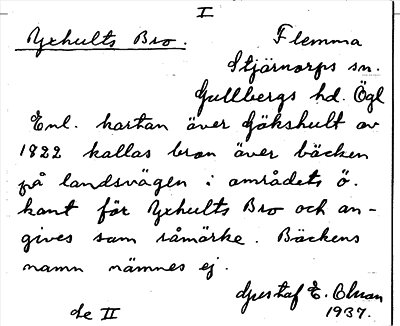 I
Yxhults Bro.
Flemma
Stjärnorps sn.
Gullbergs hd. Ögl
Enl. kartan över Gökshult av
1822 kallas bron över bäcken
på landsvägen i områdets ö.
kant för Yxhults Bro och an-
gives som råmärke. Bäckens
namn nämnes ej.
Gustaf E.
se II
1937.